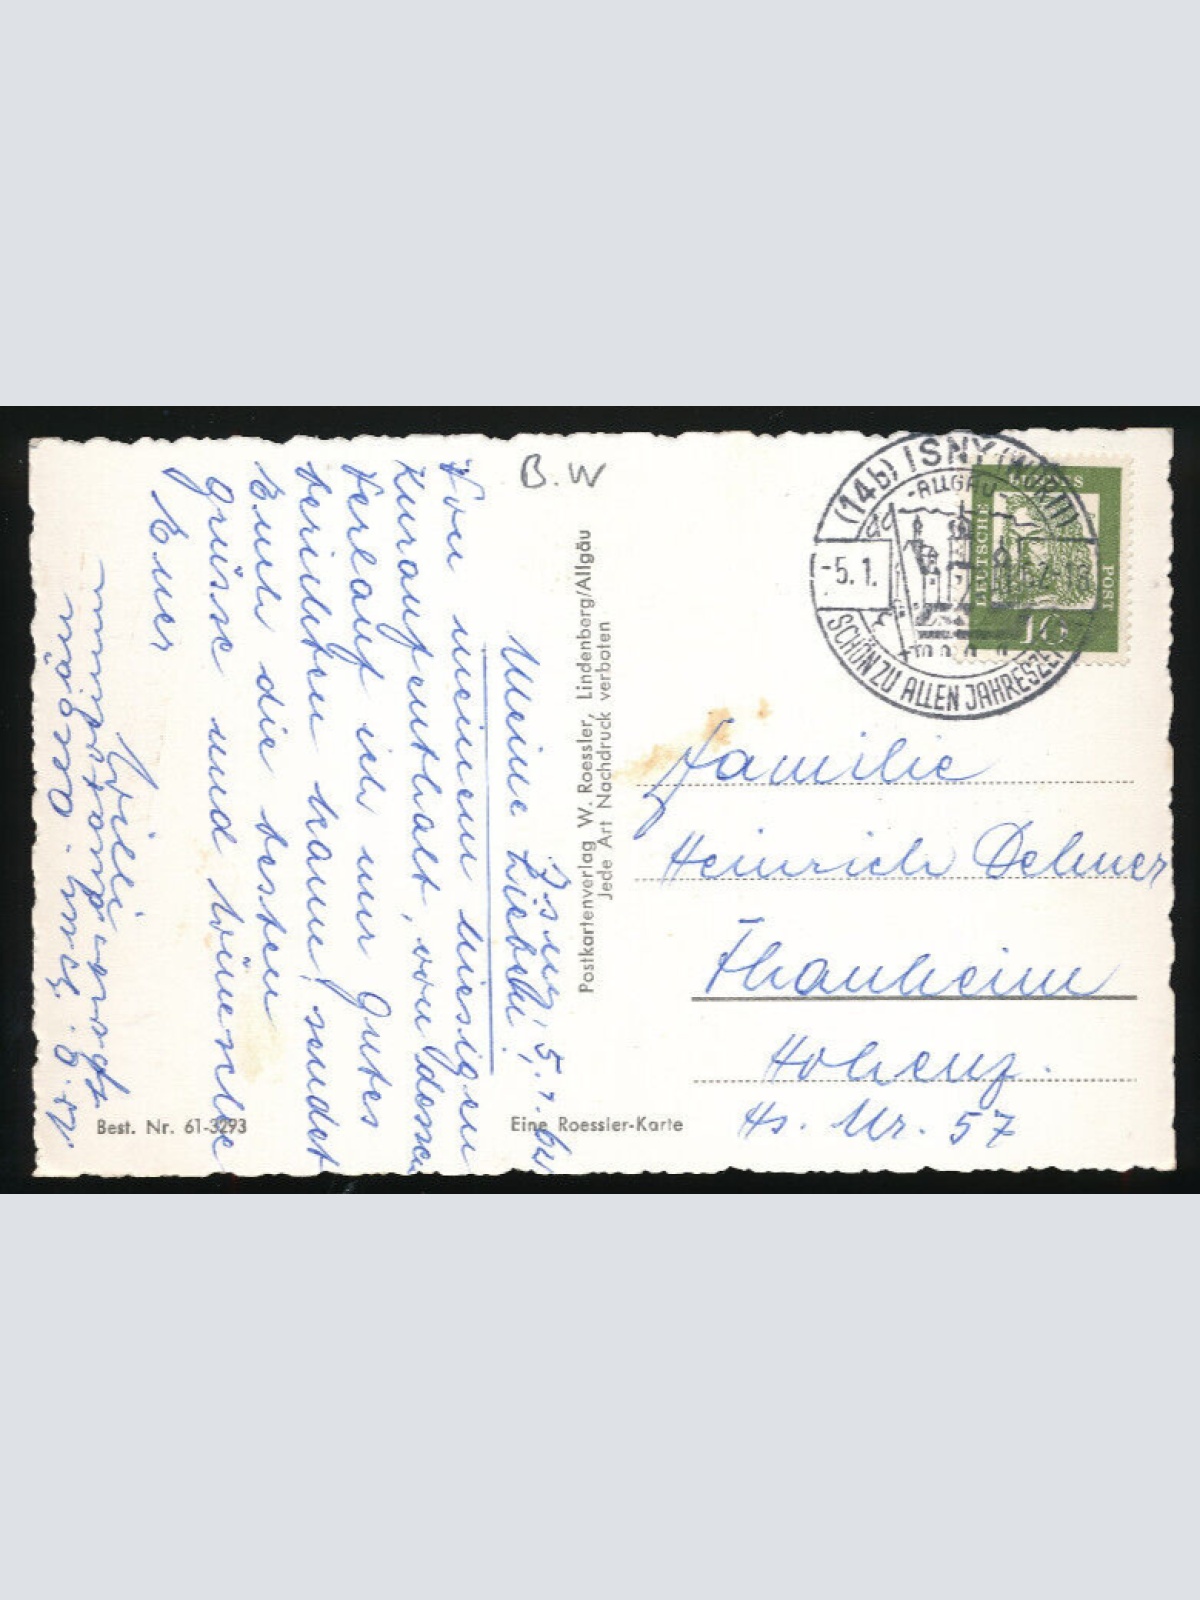 B.W
Isny, 5.1.62
Meine Lieben!
Von meinem hiesigen
Kuraufenthalt, von dessen
Verlauf ich nur Gutes
berichten kann, sendet
Euch die besten
Grüsse und Wünsche
Euer
Willi
Isny. Allgäu
Postkartenverlag W. Roessler, Lindenberg/Allgäu
Jede Art Nachdruck verboten
Best. Nr. 61-3293
Eine Roessler-Karte
(14b) ISNY (WÜRTT)
-ALLGÄU-
-5.1.62-18
SCHÖN ZU ALLEN JAHRESZEITEN
DEUTSCHE BUNDESPOST
10
Familie
Heinrich Dehner
Thanheim
Hohenz.
Hs. Nr. 57